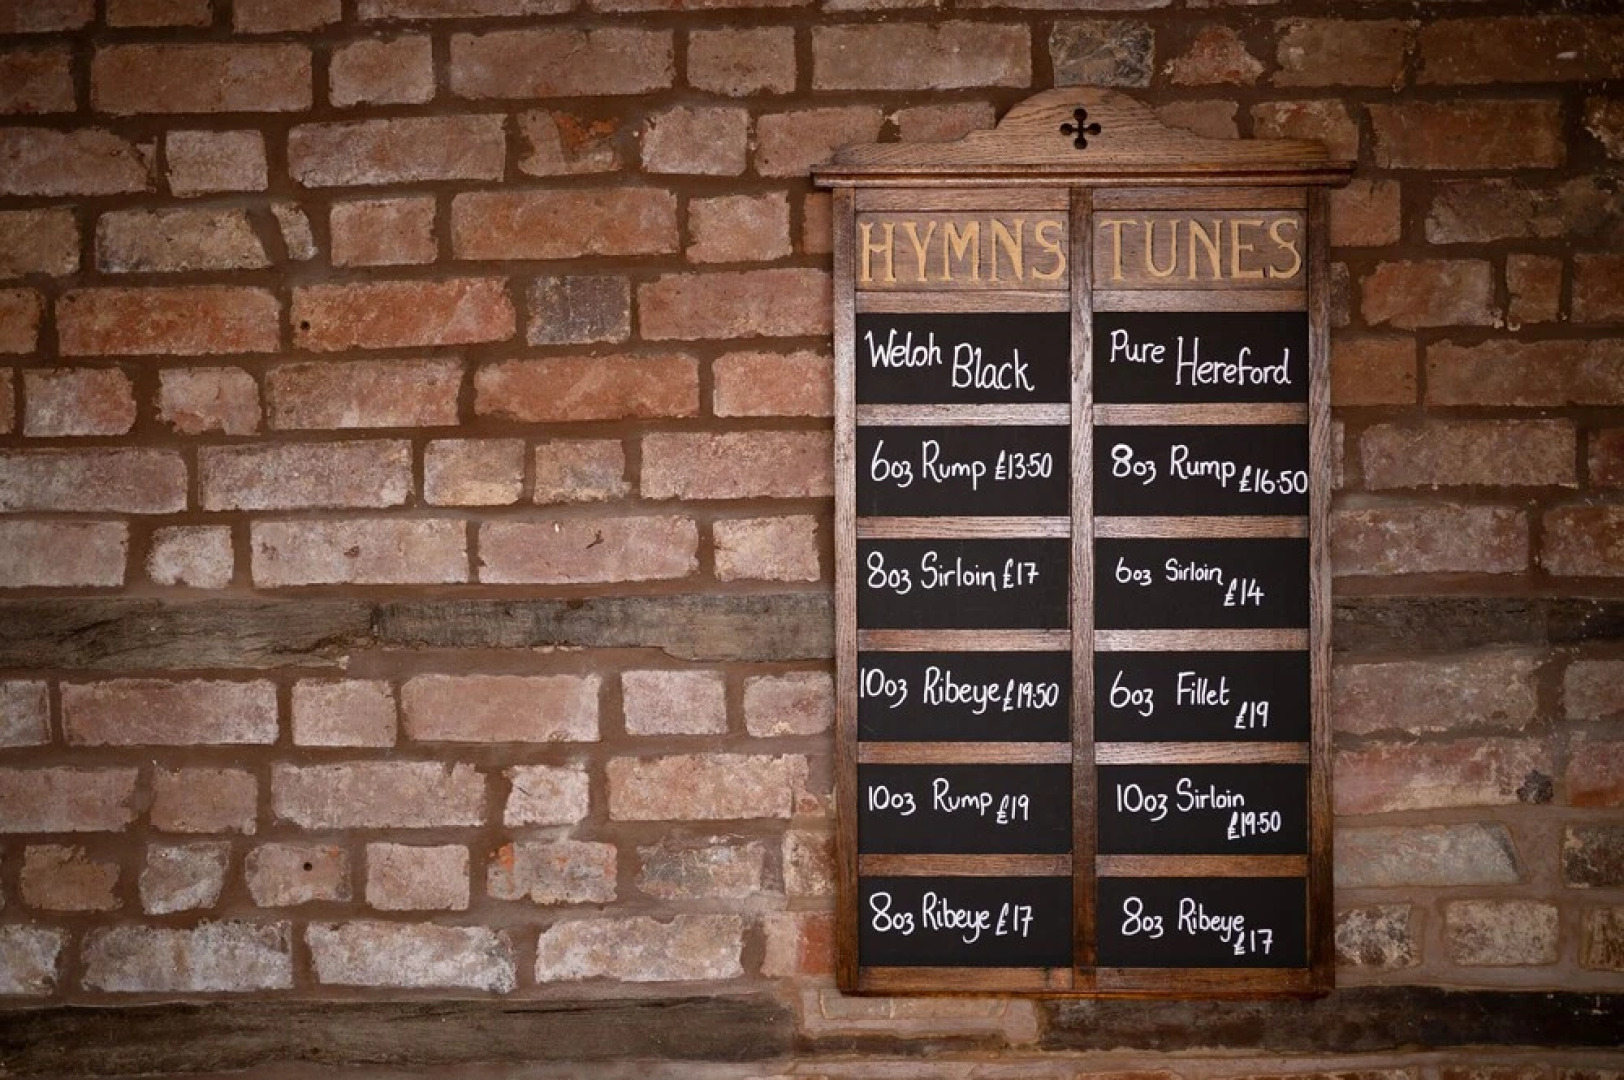 HYMNS TUNES
Weloh Black
Pure Hereford
6oz Rump £13.50
8oz Rump £16.50
8oz Sirloin £17
6oz Sirloin £14
10oz Ribeye £19.50
6oz Fillet £19
10oz Rump £19
10oz Sirloin £19.50
8oz Ribeye £17
8oz Ribeye £17